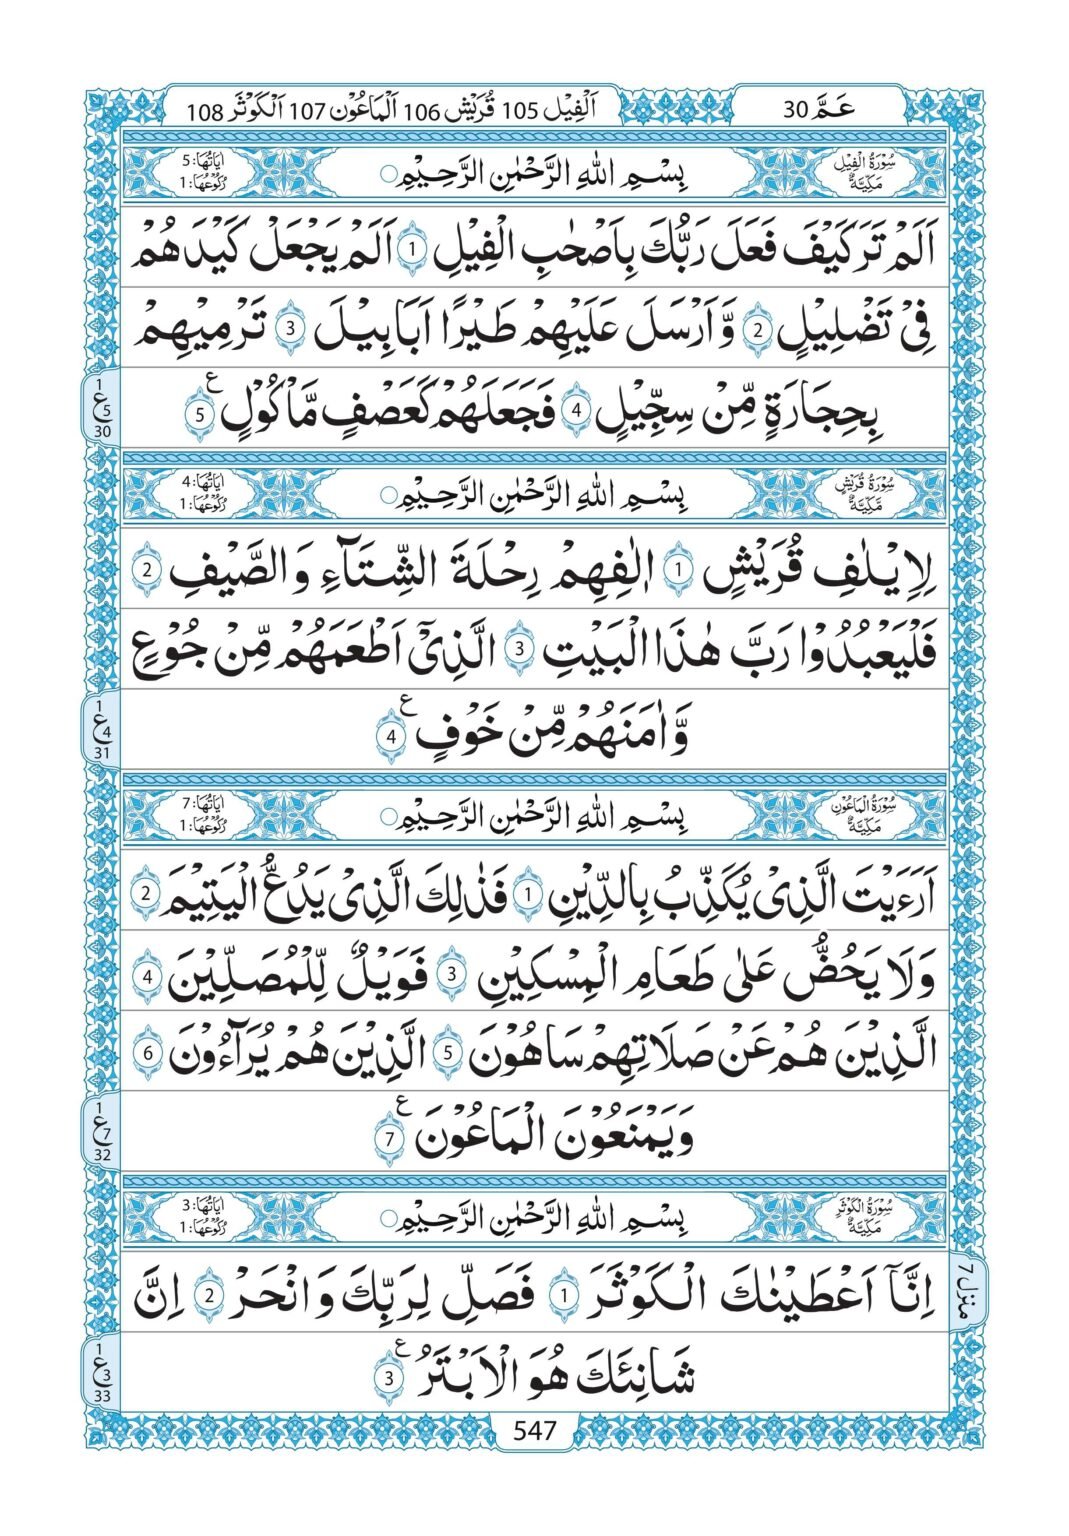 عَمَّ 30
اَلْفِيْل 105 قُرَيْش 106 اَلْمَاعُوْن 107 اَلْكَوْثَر 108
سُوْرَةُ الْفِيْلِ مَكِّيَّةٌ
بِسْمِ اللّٰهِ الرَّحْمٰنِ الرَّحِيْمِ
اٰيَاتُهَا: 5
رُكُوْعُهَا: 1
اَلَمْ تَرَ كَيْفَ فَعَلَ رَبُّكَ بِاَصْحٰبِ الْفِيْلِ 1 اَلَمْ يَجْعَلْ كَيْدَهُمْ
فِيْ تَضْلِيْلٍ 2 وَّاَرْسَلَ عَلَيْهِمْ طَيْرًا اَبَابِيْلَ 3 تَرْمِيْهِمْ
بِحِجَارَةٍ مِّنْ سِجِّيْلٍ 4 فَجَعَلَهُمْ كَعَصْفٍ مَّاْكُوْلٍ ع 5
1 ع 5 30
سُوْرَةُ قُرَيْشٍ مَّكِّيَّةٌ
بِسْمِ اللّٰهِ الرَّحْمٰنِ الرَّحِيْمِ
اٰيَاتُهَا: 4
رُكُوْعُهَا: 1
لِاِيْلٰفِ قُرَيْشٍ 1 اٖلٰفِهِمْ رِحْلَةَ الشِّتَآءِ وَالصَّيْفِ 2
فَلْيَعْبُدُوْا رَبَّ هٰذَا الْبَيْتِ 3 الَّذِيْٓ اَطْعَمَهُمْ مِّنْ جُوْعٍ
وَّاٰمَنَهُمْ مِّنْ خَوْفٍ ع 4
1 ع 4 31
سُوْرَةُ الْمَاعُوْنِ مَكِّيَّةٌ
بِسْمِ اللّٰهِ الرَّحْمٰنِ الرَّحِيْمِ
اٰيَاتُهَا: 7
رُكُوْعُهَا: 1
اَرَءَيْتَ الَّذِيْ يُكَذِّبُ بِالدِّيْنِ 1 فَذٰلِكَ الَّذِيْ يَدُعُّ الْيَتِيْمَ 2
وَلَا يَحُضُّ عَلٰى طَعَامِ الْمِسْكِيْنِ 3 فَوَيْلٌ لِّلْمُصَلِّيْنَ 4
الَّذِيْنَ هُمْ عَنْ صَلَاتِهِمْ سَاهُوْنَ 5 الَّذِيْنَ هُمْ يُرَآءُوْنَ 6
وَيَمْنَعُوْنَ الْمَاعُوْنَ ع 7
1 ع 7 32
سُوْرَةُ الْكَوْثَرِ مَكِّيَّةٌ
بِسْمِ اللّٰهِ الرَّحْمٰنِ الرَّحِيْمِ
اٰيَاتُهَا: 3
رُكُوْعُهَا: 1
اِنَّآ اَعْطَيْنٰكَ الْكَوْثَرَ 1 فَصَلِّ لِرَبِّكَ وَانْحَرْ 2 اِنَّ
منزل 7
شَانِئَكَ هُوَ الْاَبْتَرُ ع 3
1 ع 3 33
547